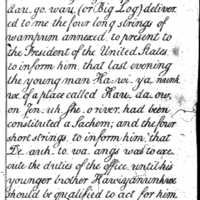 Kau. go. waw, (or Big Log) deliver-
ed to me the four long strings of
wampum annexed, to present to
the President of the United States
to inform him, that last evening
the young man Ha. wi. ya.
ne of a place called Karu. da. ow,
on Jen. uh. she. o river, had been
constituted a Sachem; and the four
short strings, to inform him, that
De. auh. to. wa. angs was to exe-
cute the duties of the office, until his
younger brother
should be qualified to act for him